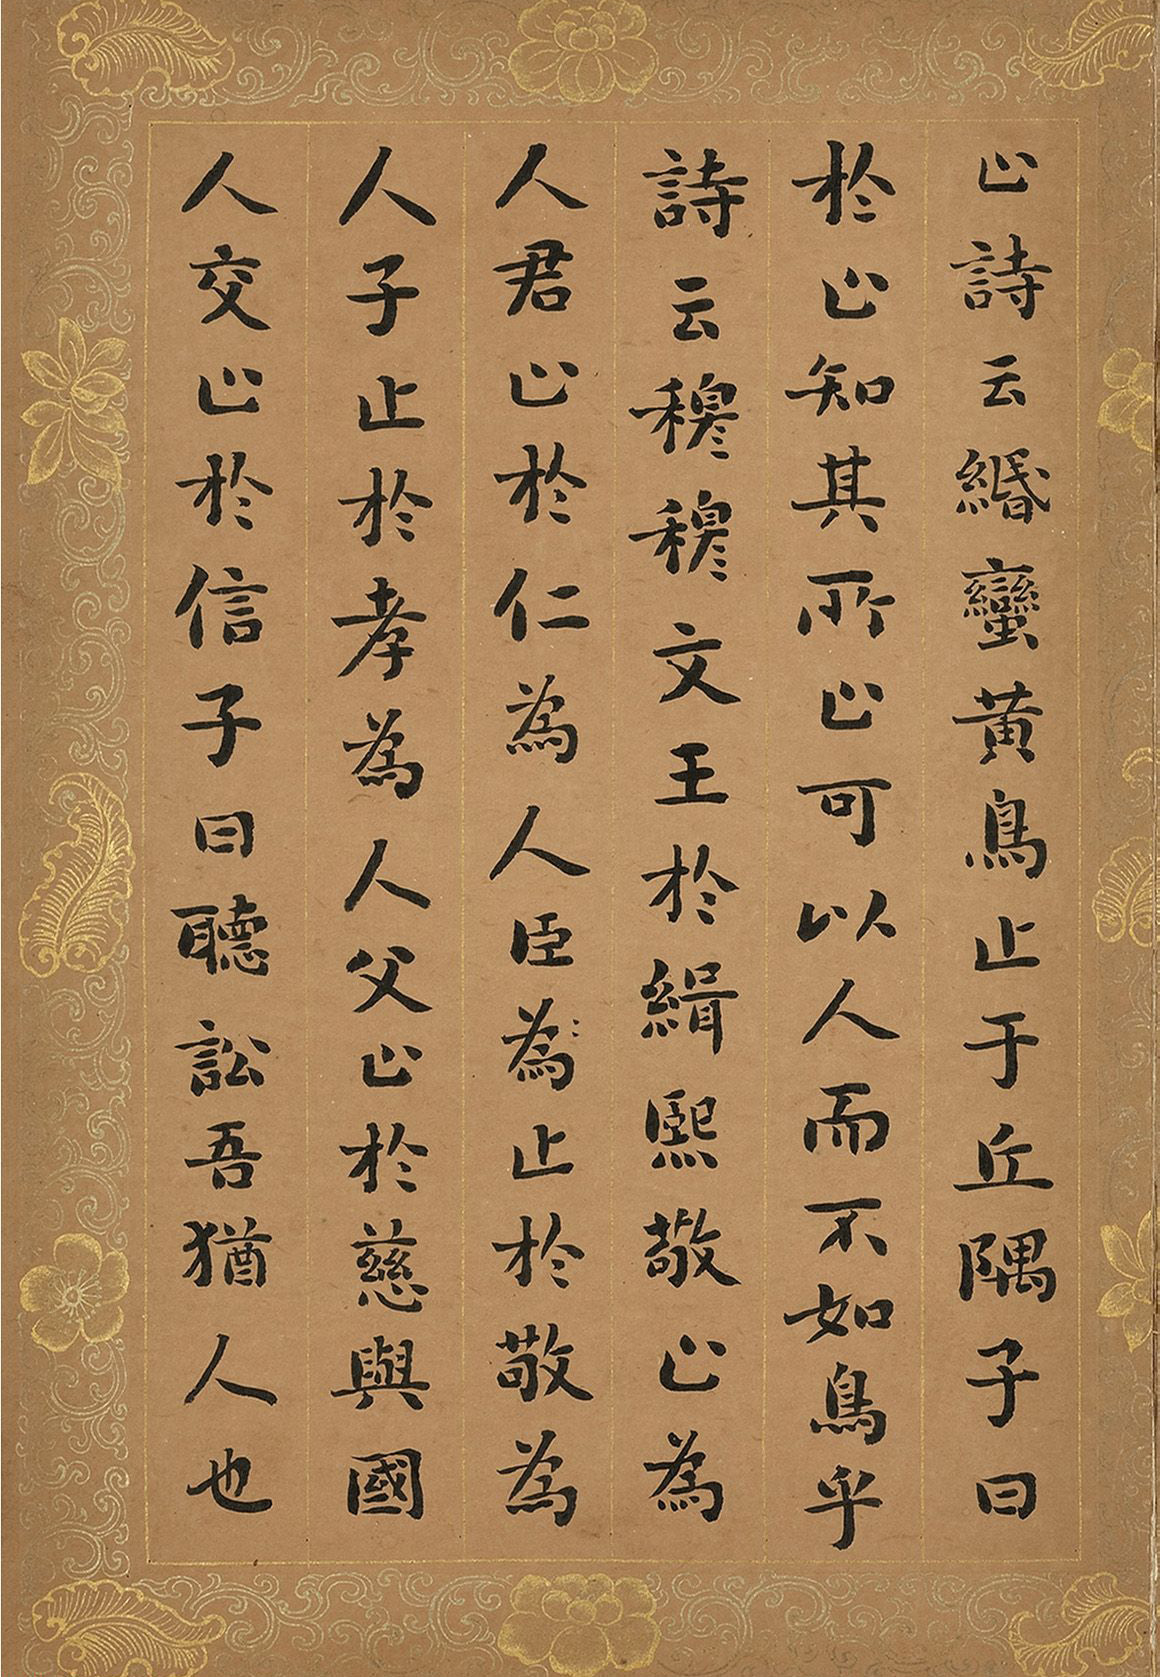 止詩云緡蠻黄鳥止于丘隅子曰
於止知其所止可以人而不如鳥乎
詩云穆穆文王於緝熙敬止為
人君止於仁為人臣為止於敬為
人子止於孝為人父止於慈與國
人交止於信子曰聽訟吾猶人也